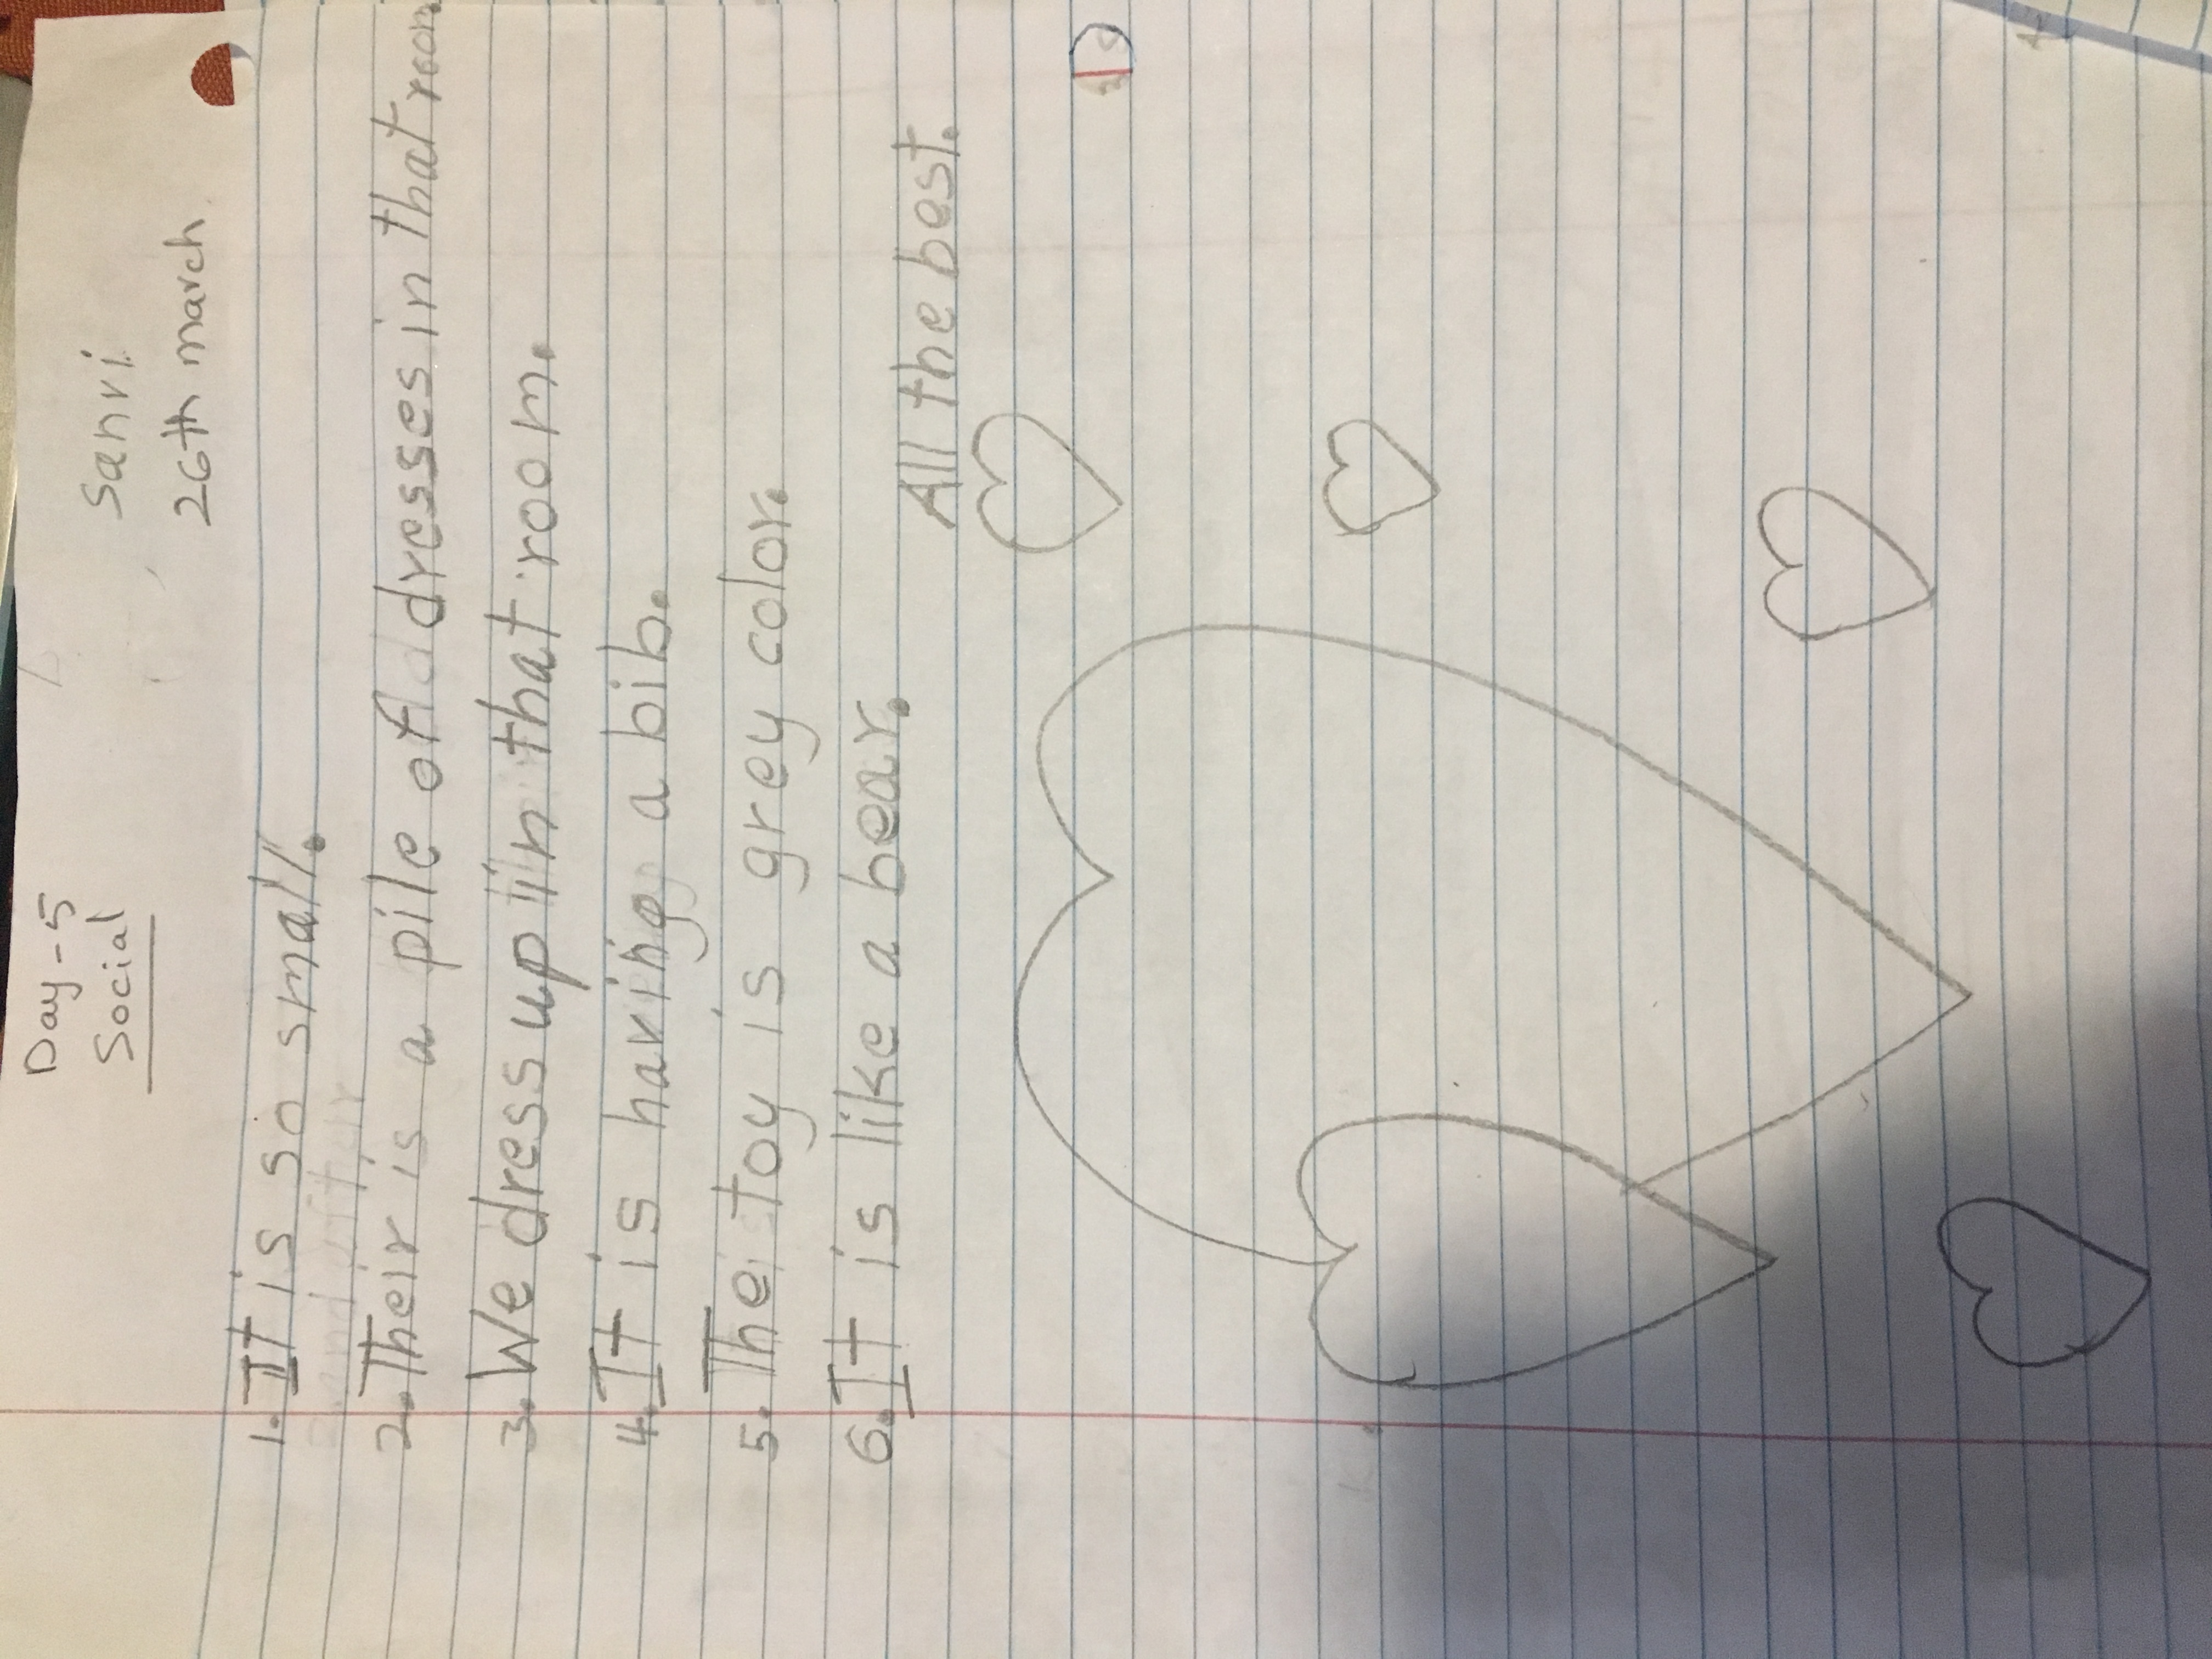 Day-5
Social
Sanvi
26th march
1. It is so small.
2. Their is a pile of dresses in that room
3. We dress up in that room.
4. It is having a bib.
5. The toy is grey color.
6. It is like a bear.
All the best.